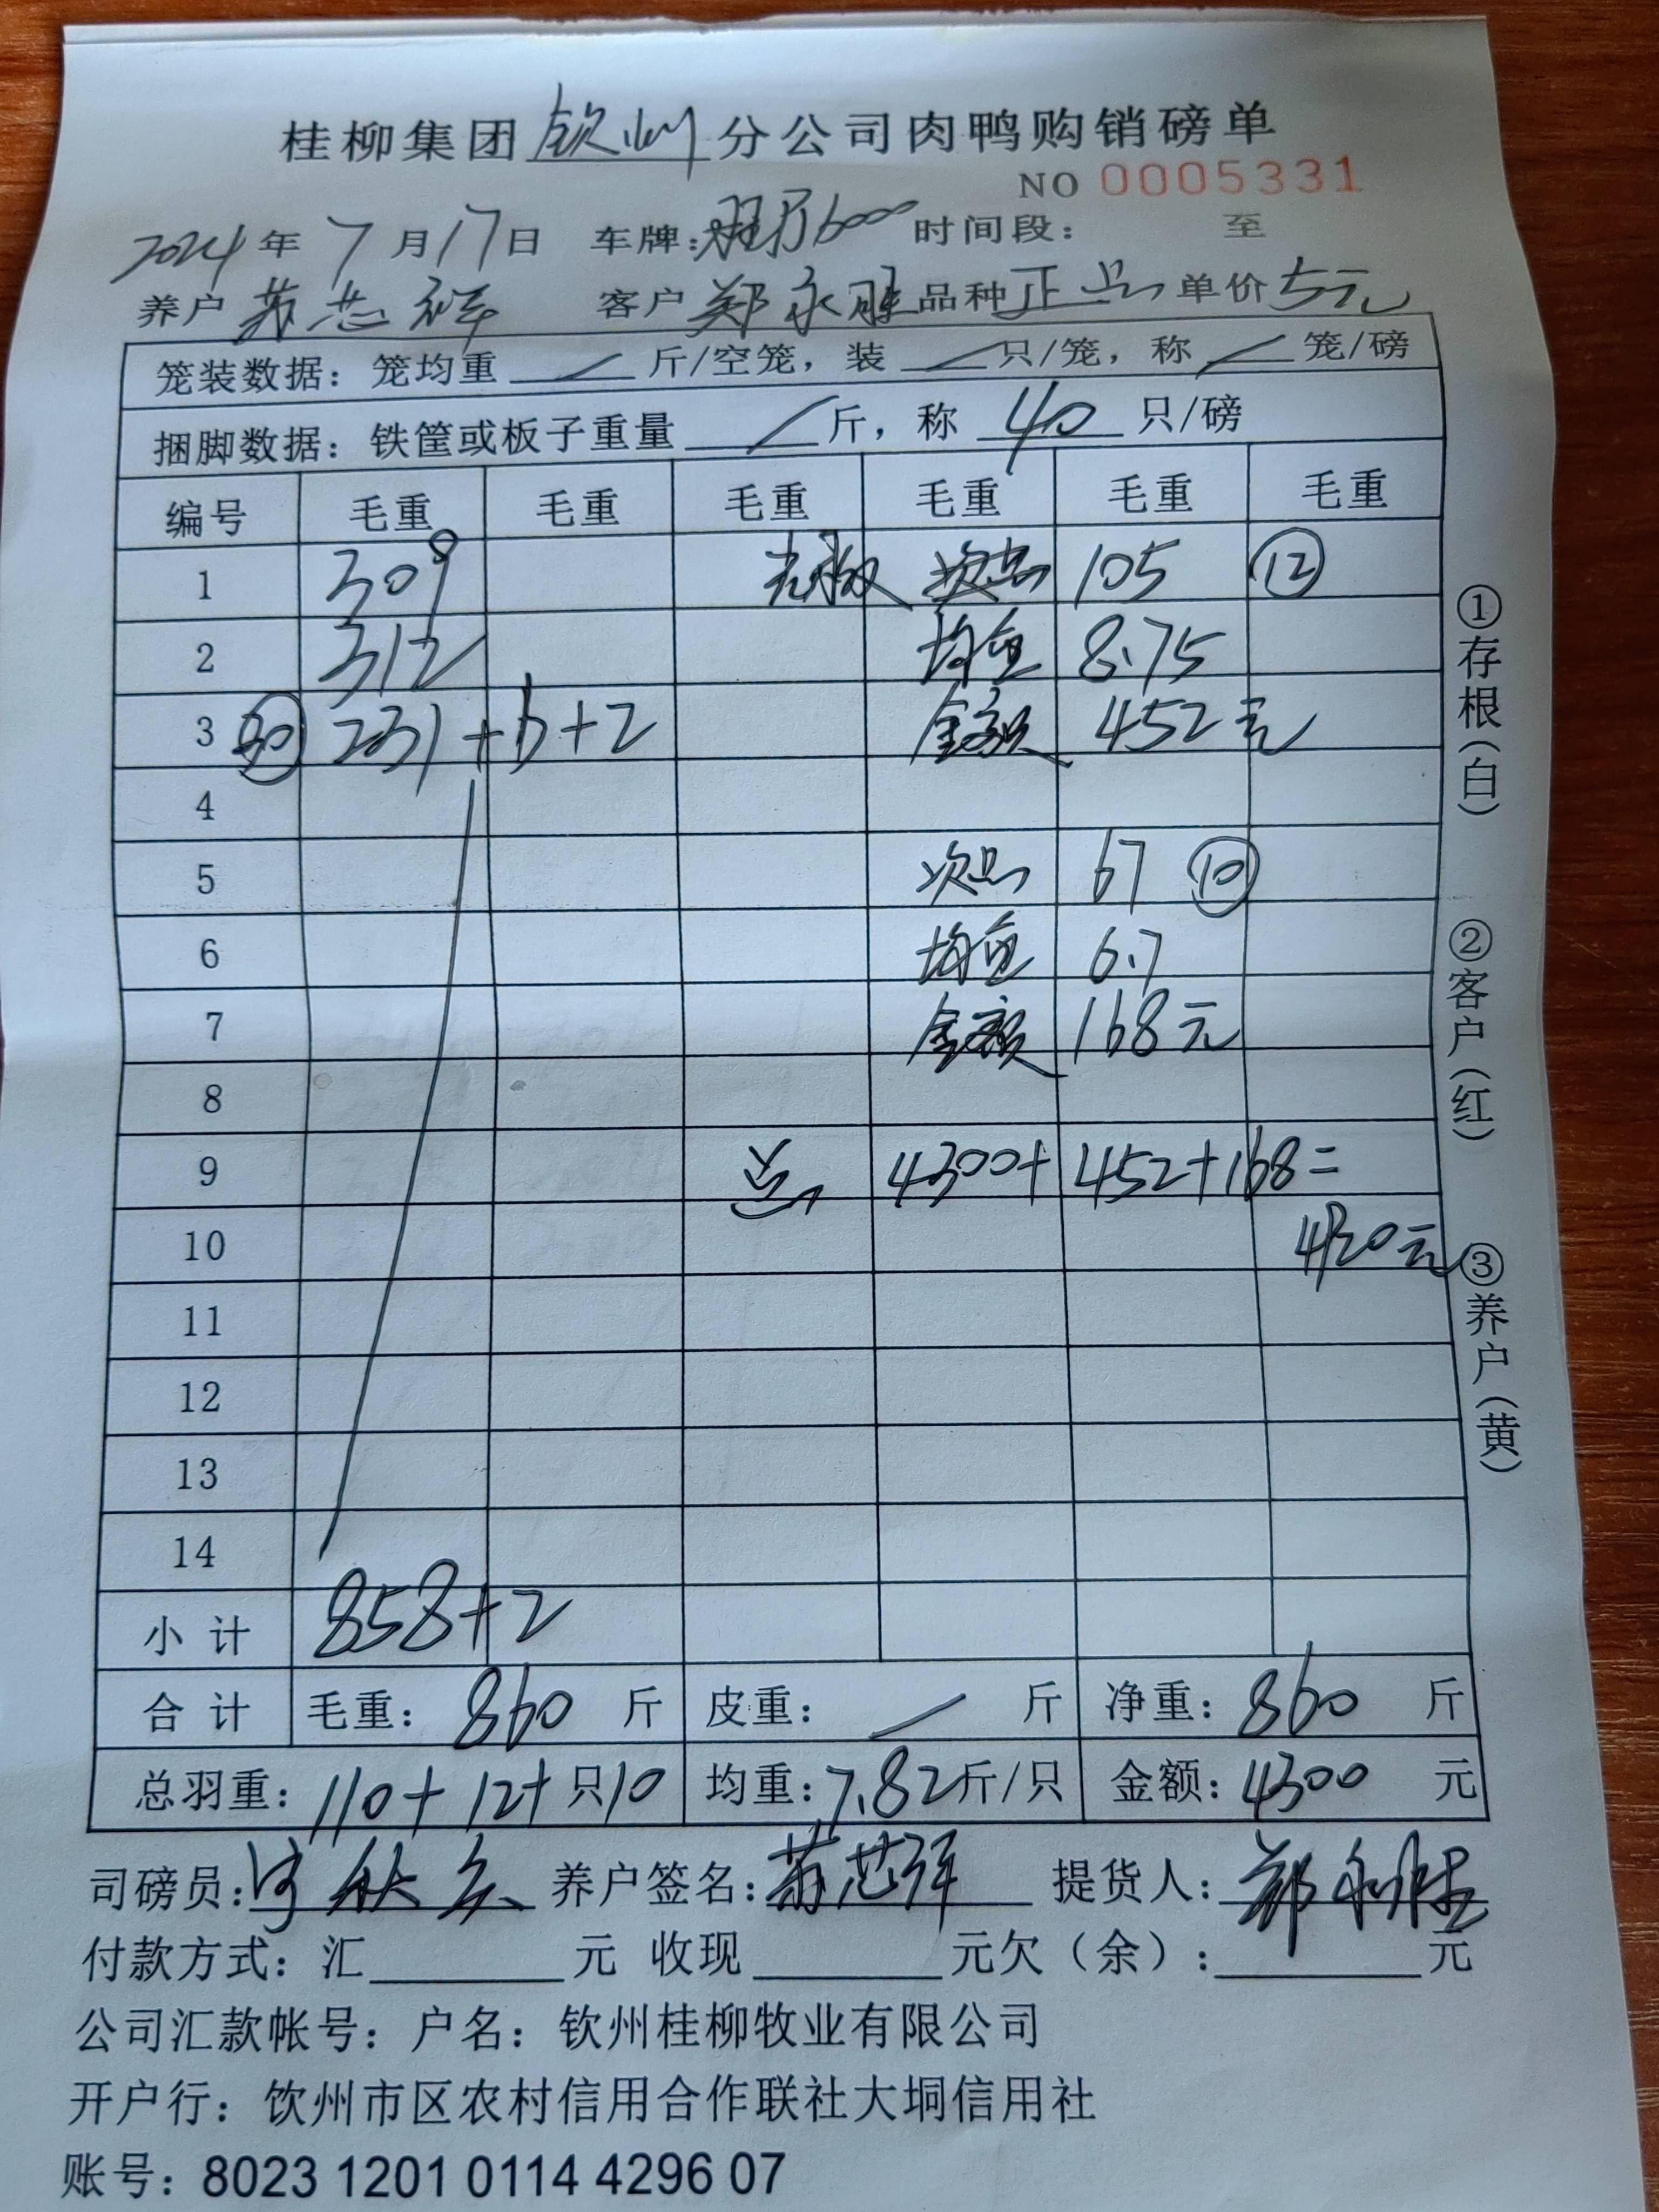 桂柳集团钦州分公司肉鸭购销磅单
NO 0005331
2024年7月17日 车牌: 6000 时间段： 至
养户 苏芯祥 客户 郑永胜 品种 正品 单价 5元
笼装数据：笼均重 / 斤/空笼，装 / 只/笼，称 / 笼/磅
捆脚数据：铁筐或板子重量 / 斤，称 40 只/磅
编号 毛重 毛重 毛重 毛重 毛重 毛重
1 309 次品 105 ⑫
2 312 均重 8.75
3 ㉚ 231+6+2 金额 452元
4
5 次品 67 ⑩
6 均重 6.7
7 金额 168元
8
9 总 4300+452+168=
10 4920元
11
12
13
14
小计 858+2
合计 毛重：860 斤 皮重： / 斤 净重：860 斤
总羽重：110+12+只10 均重：7.82斤/只 金额：4300 元
司磅员: 养户签名:苏芯祥 提货人:郑永胜
付款方式：汇 元 收现 元欠（余）: 元
公司汇款帐号：户名：钦州桂柳牧业有限公司
开户行：饮州市区农村信用合作联社大垌信用社
账号：8023 1201 0114 4296 07
①存根（白）
②客户（红）
③养户（黄）